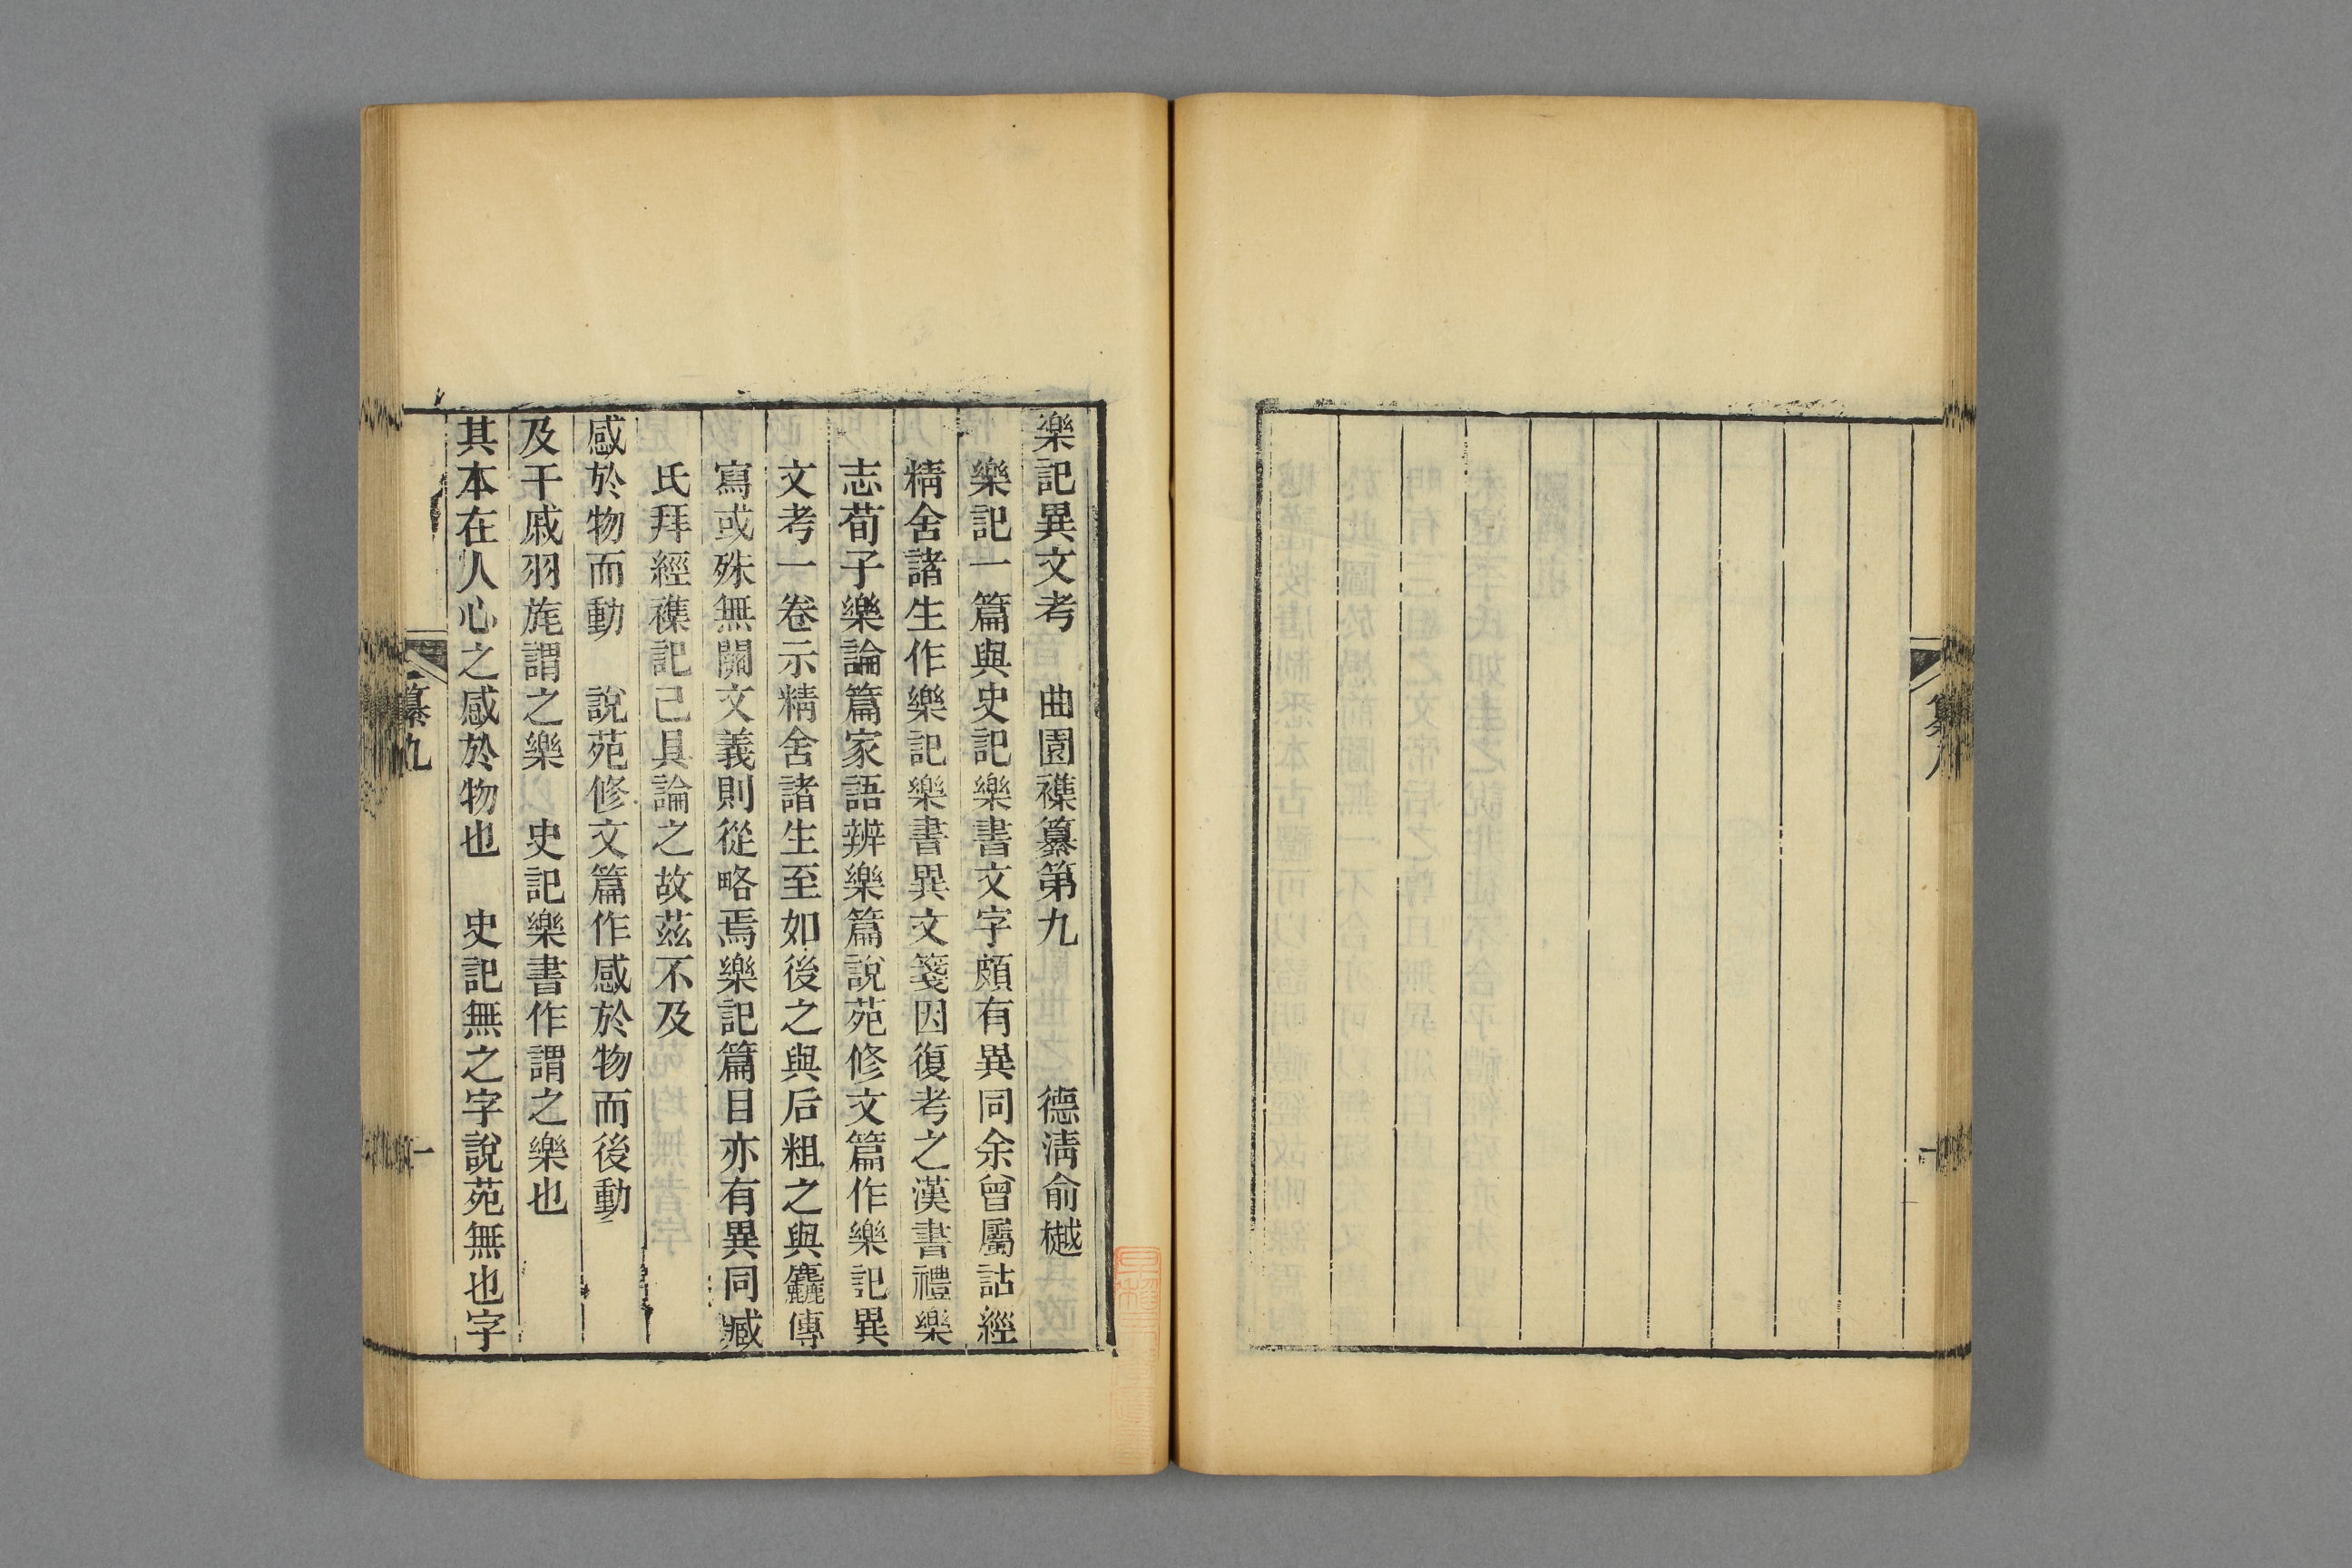 纂八
一
樂記異文考　曲園襍纂第九　　　德淸俞樾
樂記一篇與史記樂書文字頗有異同余曾屬詁經
精舍諸生作樂記樂書異文箋因復考之漢書禮樂
志荀子樂論篇家語辨樂篇說苑修文篇作樂記異
文考一卷示精舍諸生至如後之與后粗之與麤傳
寫或殊無關文義則從略焉樂記篇目亦有異同臧
氏拜經襍記已具論之故茲不及
感於物而動　說苑修文篇作感於物而後動
及干戚羽旄謂之樂　史記樂書作謂之樂也
其本在人心之感於物也　史記無之字說苑無也字
纂九
一